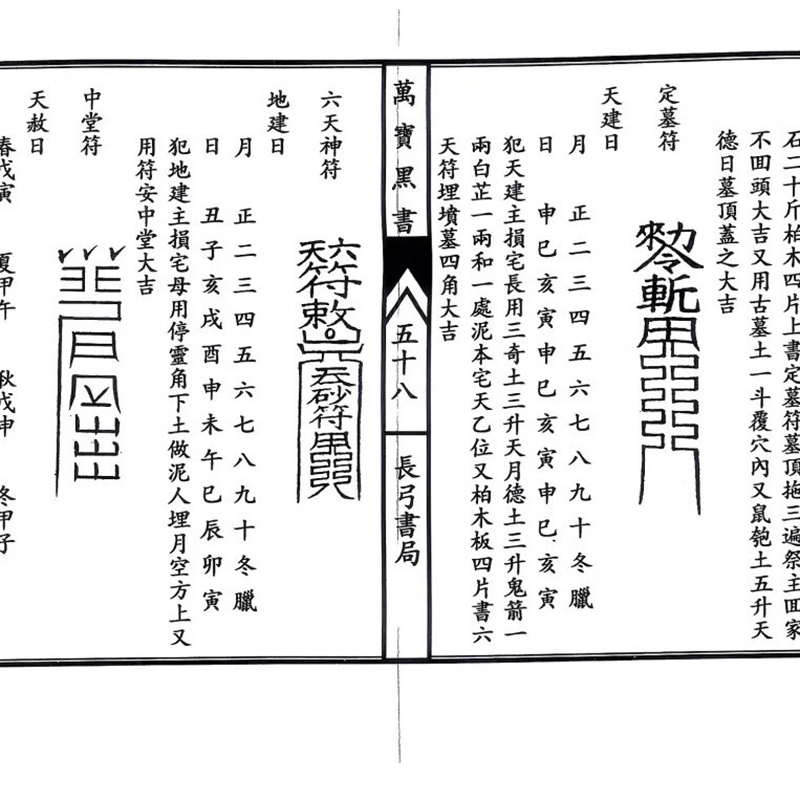 石二十斤柏木四片上書定墓符墓頂拖三遍祭主回家
不回頭大吉又用古墓土一斗覆穴內又鼠匏土五升天
德日墓頂蓋之大吉
定墓符
天建日
月 正二三四五六七八九十冬臘
日 申巳亥寅申巳亥寅申巳亥寅
犯天建主損宅長用三奇土三升天月德土三升鬼箭一
兩白芷一兩和一處泥本宅天乙位又柏木板四片書六
天符埋墳墓四角大吉
萬寶黑書
五十八
長弓書局
六天神符
六天符敕
吞砂符
地建日
月 正二三四五六七八九十冬臘
日 丑子亥戌酉申未午巳辰卯寅
犯地建主損宅母用停靈角下土做泥人埋月空方上又
用符安中堂大吉
中堂符
天赦日
春戊寅 夏甲午 秋戊申 冬甲子